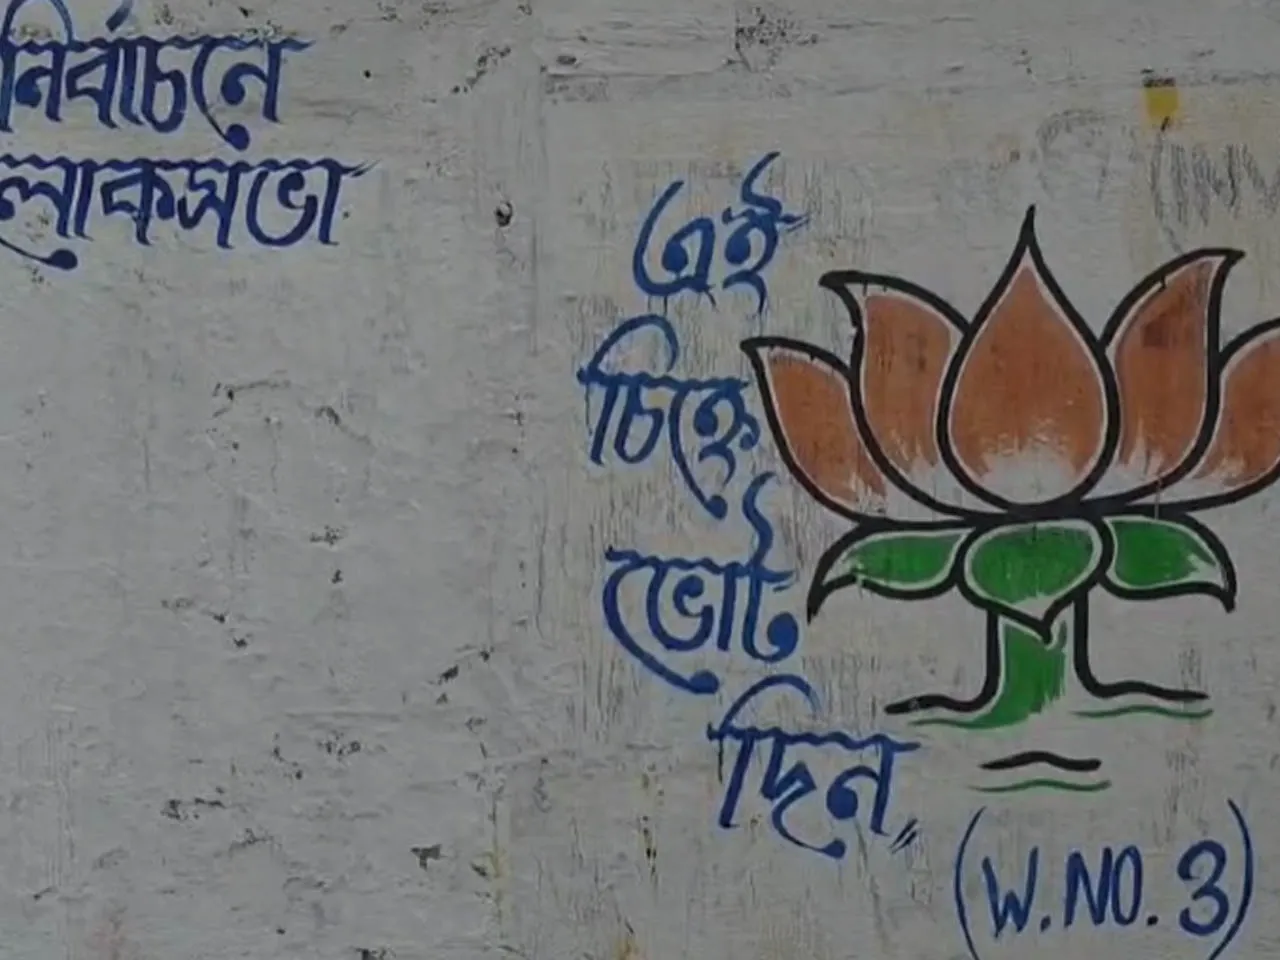 নির্বাচনে
লোকসভা
এই
চিহ্নে
ভোট
দিন
(W.NO. 3)